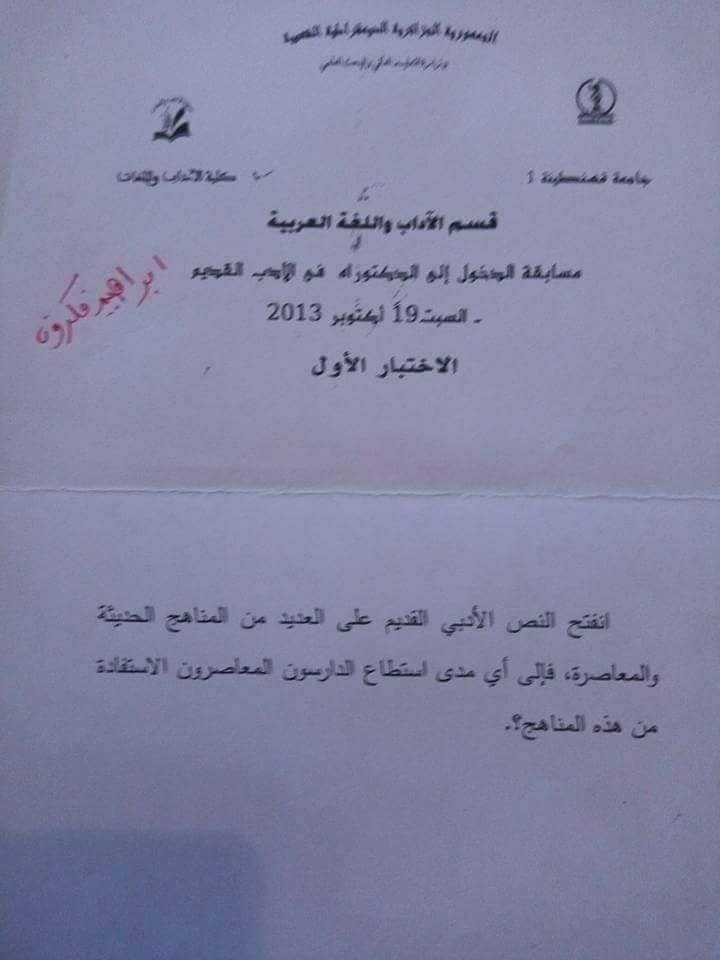 الجمهورية الجزائرية الديمقراطية الشعبية
وزارة التعليم العالي والبحث العلمي
جامعة قسنطينة 1
كلية الآداب واللغات
قسم الآداب واللغة العربية
مسابقة الدخول إلى الدكتوراه في الأدب القديم
ـ السبت19 أكتوبر 2013
الاختبار الأول
ابراهيم فكرون
انفتح النص الأدبي القديم على العديد من المناهج الحديثة
والمعاصرة، فإلى أي مدى استطاع الدارسون المعاصرون الاستفادة
من هذه المناهج؟.